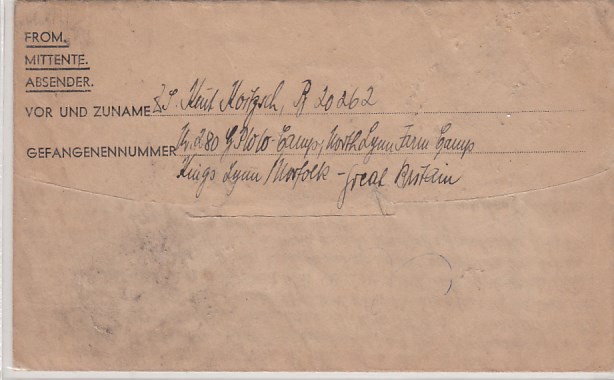 FROM.
MITTENTE.
ABSENDER.
VOR UND ZUNAME Kurt 20262
GEFANGENENNUMMER Nr. 280 G.P.W.W-Camp, North Lynn Farm Camp
Kings Lynn/Norfolk - Great Britain